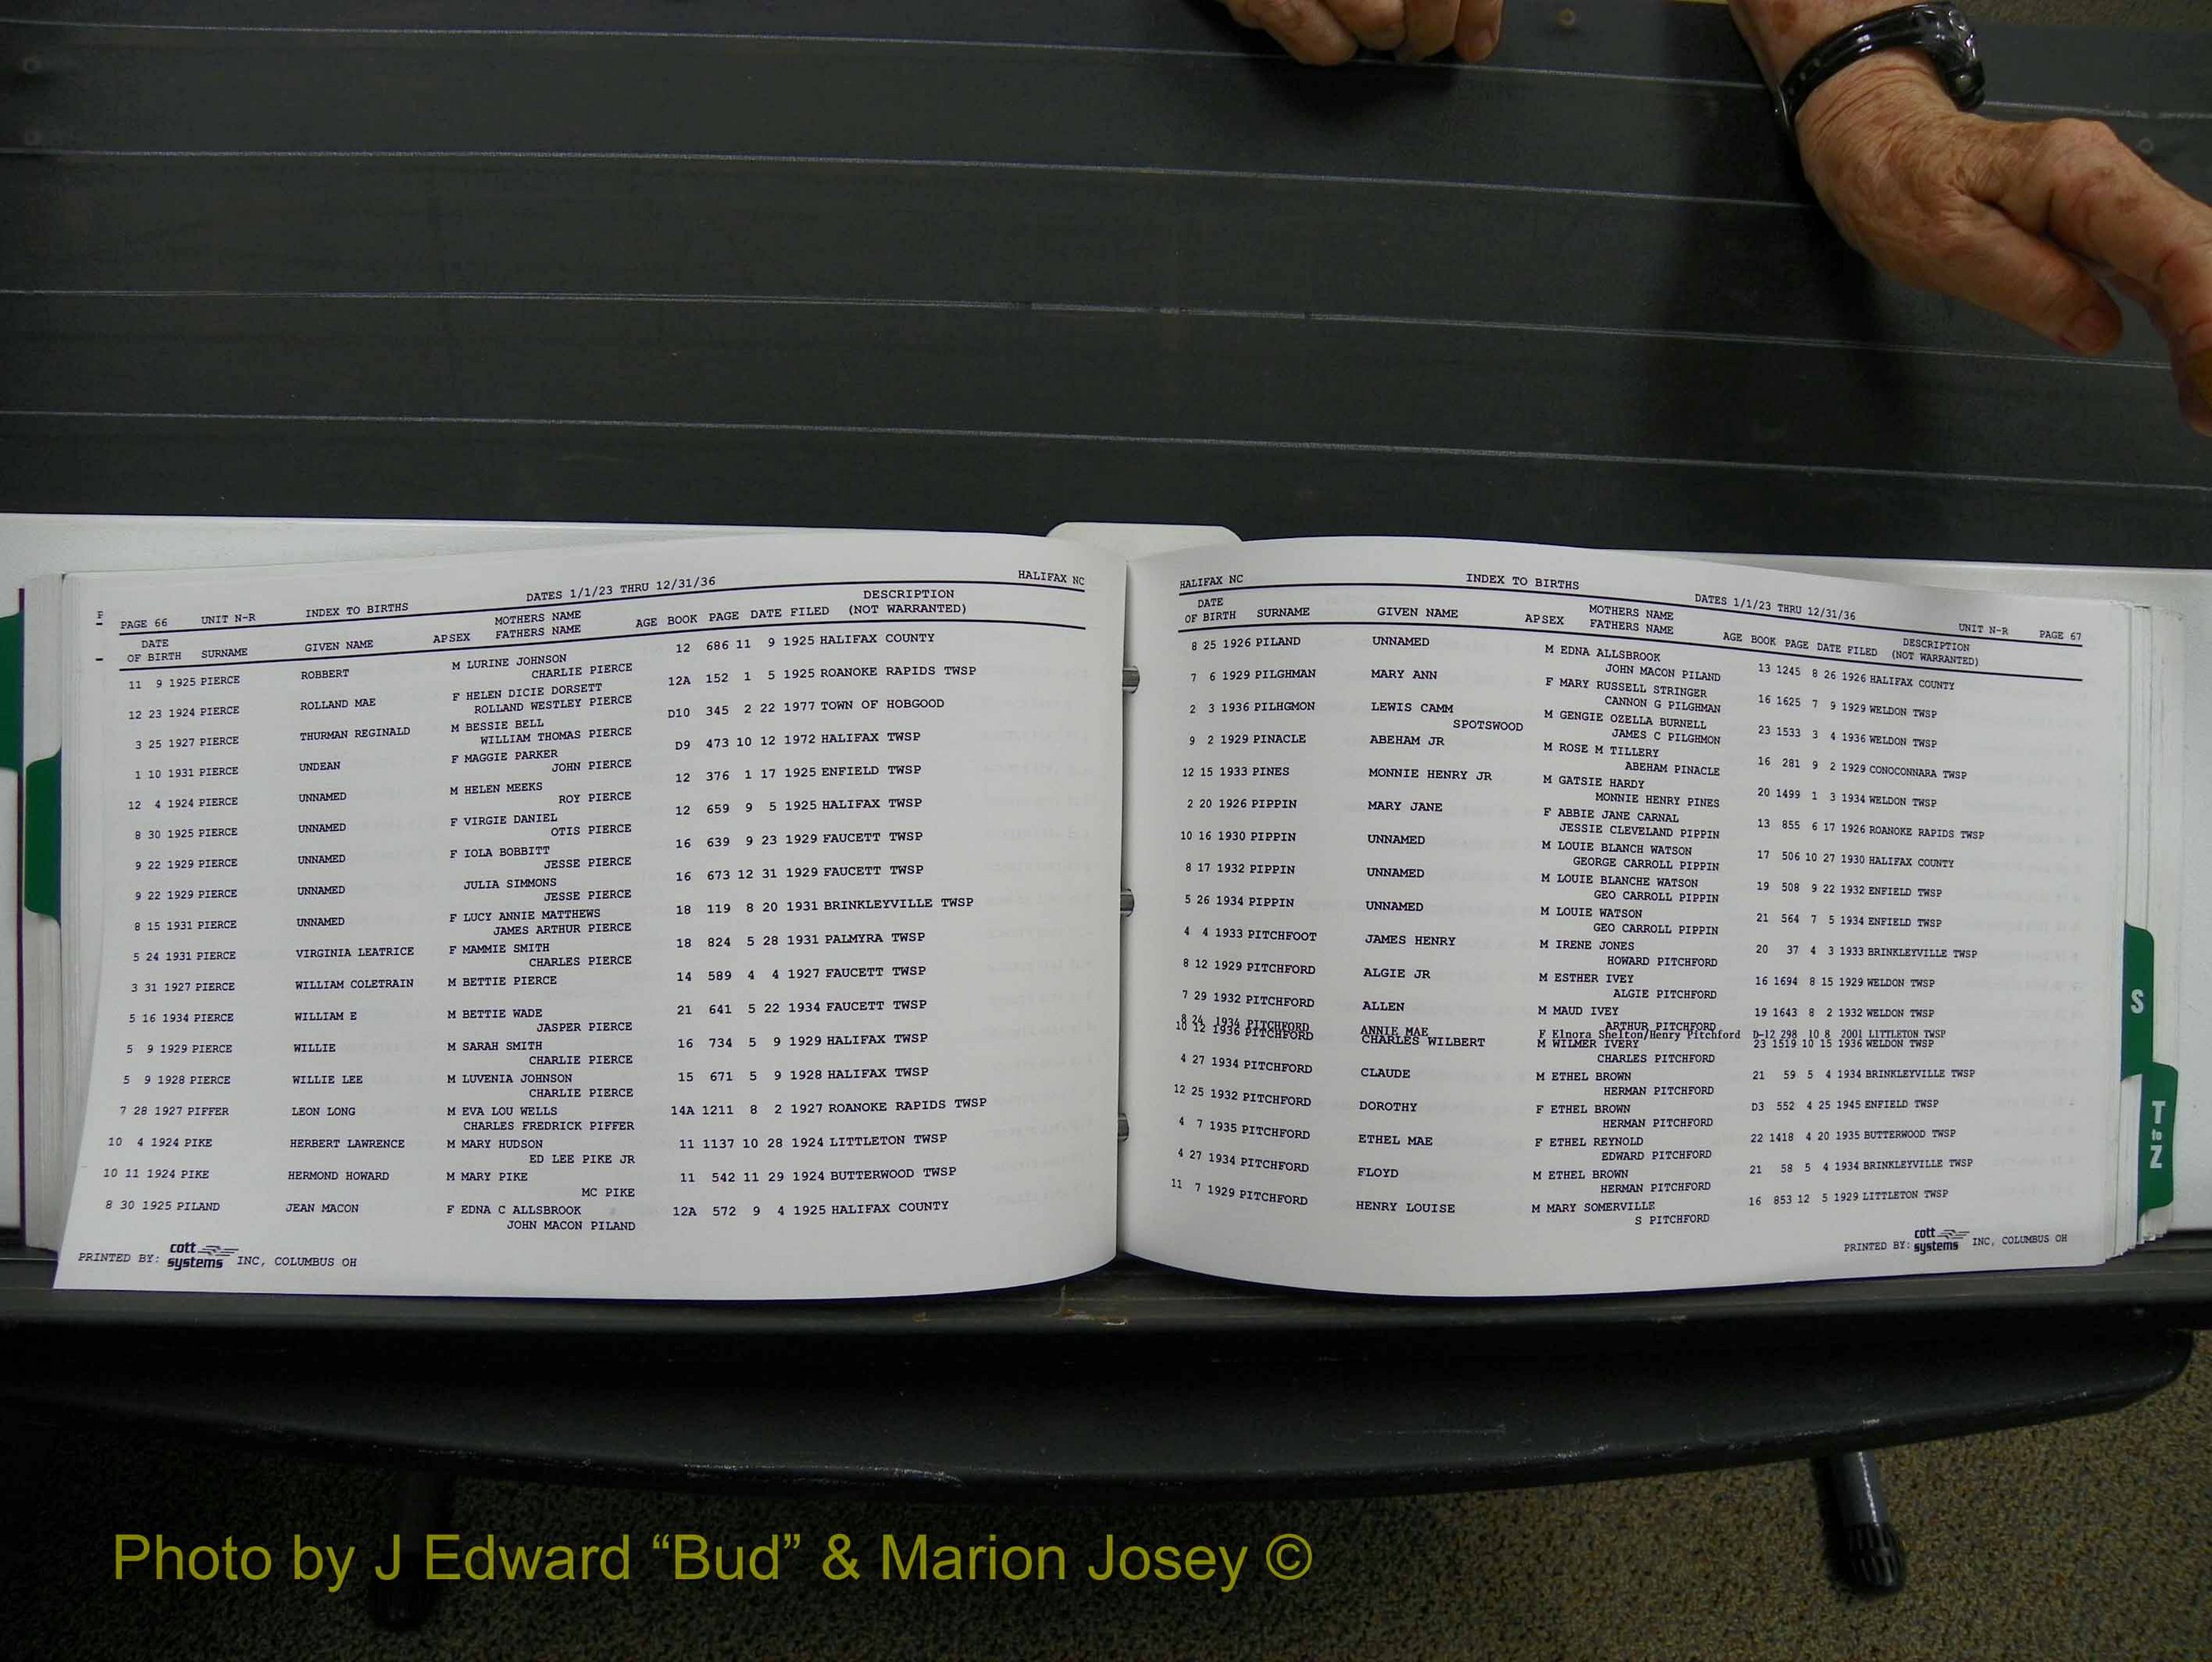 PAGE 66 UNIT N-R INDEX TO BIRTHS DATES 1/1/23 THRU 12/31/36 HALIFAX NC
DATE MOTHERS NAME DESCRIPTION
OF BIRTH SURNAME GIVEN NAME APSEX FATHERS NAME AGE BOOK PAGE DATE FILED (NOT WARRANTED)
11 9 1925 PIERCE ROBBERT M LURINE JOHNSON 12 686 11 9 1925 HALIFAX COUNTY
CHARLIE PIERCE
12 23 1924 PIERCE ROLLAND MAE F HELEN DICIE DORSETT 12A 152 1 5 1925 ROANOKE RAPIDS TWSP
ROLLAND WESTLEY PIERCE
3 25 1927 PIERCE THURMAN REGINALD M BESSIE BELL D10 345 2 22 1977 TOWN OF HOBGOOD
WILLIAM THOMAS PIERCE
1 10 1931 PIERCE UNDEAN F MAGGIE PARKER D9 473 10 12 1972 HALIFAX TWSP
JOHN PIERCE
12 4 1924 PIERCE UNNAMED M HELEN MEEKS 12 376 1 17 1925 ENFIELD TWSP
ROY PIERCE
8 30 1925 PIERCE UNNAMED F VIRGIE DANIEL 12 659 9 5 1925 HALIFAX TWSP
OTIS PIERCE
9 22 1929 PIERCE UNNAMED F IOLA BOBBITT 16 639 9 23 1929 FAUCETT TWSP
JESSE PIERCE
9 22 1929 PIERCE UNNAMED JULIA SIMMONS 16 673 12 31 1929 FAUCETT TWSP
JESSE PIERCE
8 15 1931 PIERCE UNNAMED F LUCY ANNIE MATTHEWS 18 119 8 20 1931 BRINKLEYVILLE TWSP
JAMES ARTHUR PIERCE
5 24 1931 PIERCE VIRGINIA LEATRICE F MAMMIE SMITH 18 824 5 28 1931 PALMYRA TWSP
CHARLES PIERCE
3 31 1927 PIERCE WILLIAM COLETRAIN M BETTIE PIERCE 14 589 4 4 1927 FAUCETT TWSP
5 16 1934 PIERCE WILLIAM E M BETTIE WADE 21 641 5 22 1934 FAUCETT TWSP
JASPER PIERCE
5 9 1929 PIERCE WILLIE M SARAH SMITH 16 734 5 9 1929 HALIFAX TWSP
CHARLIE PIERCE
5 9 1928 PIERCE WILLIE LEE M LUVENIA JOHNSON 15 671 5 9 1928 HALIFAX TWSP
CHARLIE PIERCE
7 28 1927 PIFFER LEON LONG M EVA LOU WELLS 14A 1211 8 2 1927 ROANOKE RAPIDS TWSP
CHARLES FREDRICK PIFFER
10 4 1924 PIKE HERBERT LAWRENCE M MARY HUDSON 11 1137 10 28 1924 LITTLETON TWSP
ED LEE PIKE JR
10 11 1924 PIKE HERMOND HOWARD M MARY PIKE 11 542 11 29 1924 BUTTERWOOD TWSP
MC PIKE
8 30 1925 PILAND JEAN MACON F EDNA C ALLSBROOK 12A 572 9 4 1925 HALIFAX COUNTY
JOHN MACON PILAND
PRINTED BY: cott systems INC, COLUMBUS OH
HALIFAX NC INDEX TO BIRTHS DATES 1/1/23 THRU 12/31/36 UNIT N-R PAGE 67
DATE MOTHERS NAME DESCRIPTION
OF BIRTH SURNAME GIVEN NAME APSEX FATHERS NAME AGE BOOK PAGE DATE FILED (NOT WARRANTED)
8 25 1926 PILAND UNNAMED M EDNA ALLSBROOK 13 1245 8 26 1926 HALIFAX COUNTY
JOHN MACON PILAND
7 6 1929 PILGHMAN MARY ANN F MARY RUSSELL STRINGER 16 1625 7 9 1929 WELDON TWSP
CANNON G PILGHMAN
2 3 1936 PILHGMON LEWIS CAMM M GENGIE OZELLA BURNELL 23 1533 3 4 1936 WELDON TWSP
SPOTSWOOD JAMES C PILGHMON
9 2 1929 PINACLE ABEHAM JR M ROSE M TILLERY 16 281 9 2 1929 CONOCONNARA TWSP
ABEHAM PINACLE
12 15 1933 PINES MONNIE HENRY JR M GATSIE HARDY 20 1499 1 3 1934 WELDON TWSP
MONNIE HENRY PINES
2 20 1926 PIPPIN MARY JANE F ABBIE JANE CARNAL 13 855 6 17 1926 ROANOKE RAPIDS TWSP
JESSIE CLEVELAND PIPPIN
10 16 1930 PIPPIN UNNAMED M LOUIE BLANCH WATSON 17 506 10 27 1930 HALIFAX COUNTY
GEORGE CARROLL PIPPIN
8 17 1932 PIPPIN UNNAMED M LOUIE BLANCHE WATSON 19 508 9 22 1932 ENFIELD TWSP
GEO CARROLL PIPPIN
5 26 1934 PIPPIN UNNAMED M LOUIE WATSON 21 564 7 5 1934 ENFIELD TWSP
GEO CARROLL PIPPIN
4 4 1933 PITCHFOOT JAMES HENRY M IRENE JONES 20 37 4 3 1933 BRINKLEYVILLE TWSP
HOWARD PITCHFORD
8 12 1929 PITCHFORD ALGIE JR M ESTHER IVEY 16 1694 8 15 1929 WELDON TWSP
ALGIE PITCHFORD
7 29 1932 PITCHFORD ALLEN M MAUD IVEY 19 1643 8 2 1932 WELDON TWSP
ARTHUR PITCHFORD
8 24 1934 PITCHFORD ANNIE MAE F Elnora Shelton/Henry Pitchford D-12 298 10 8 2001 LITTLETON TWSP
10 12 1936 PITCHFORD CHARLES WILBERT M WILMER IVERY 23 1519 10 15 1936 WELDON TWSP
CHARLES PITCHFORD
4 27 1934 PITCHFORD CLAUDE M ETHEL BROWN 21 59 5 4 1934 BRINKLEYVILLE TWSP
HERMAN PITCHFORD
12 25 1932 PITCHFORD DOROTHY F ETHEL BROWN D3 552 4 25 1945 ENFIELD TWSP
HERMAN PITCHFORD
4 7 1935 PITCHFORD ETHEL MAE F ETHEL REYNOLD 22 1418 4 20 1935 BUTTERWOOD TWSP
EDWARD PITCHFORD
4 27 1934 PITCHFORD FLOYD M ETHEL BROWN 21 58 5 4 1934 BRINKLEYVILLE TWSP
HERMAN PITCHFORD
11 7 1929 PITCHFORD HENRY LOUISE M MARY SOMERVILLE 16 853 12 5 1929 LITTLETON TWSP
S PITCHFORD
PRINTED BY: cott systems INC, COLUMBUS OH
S
T to Z
Photo by J Edward “Bud” & Marion Josey ©